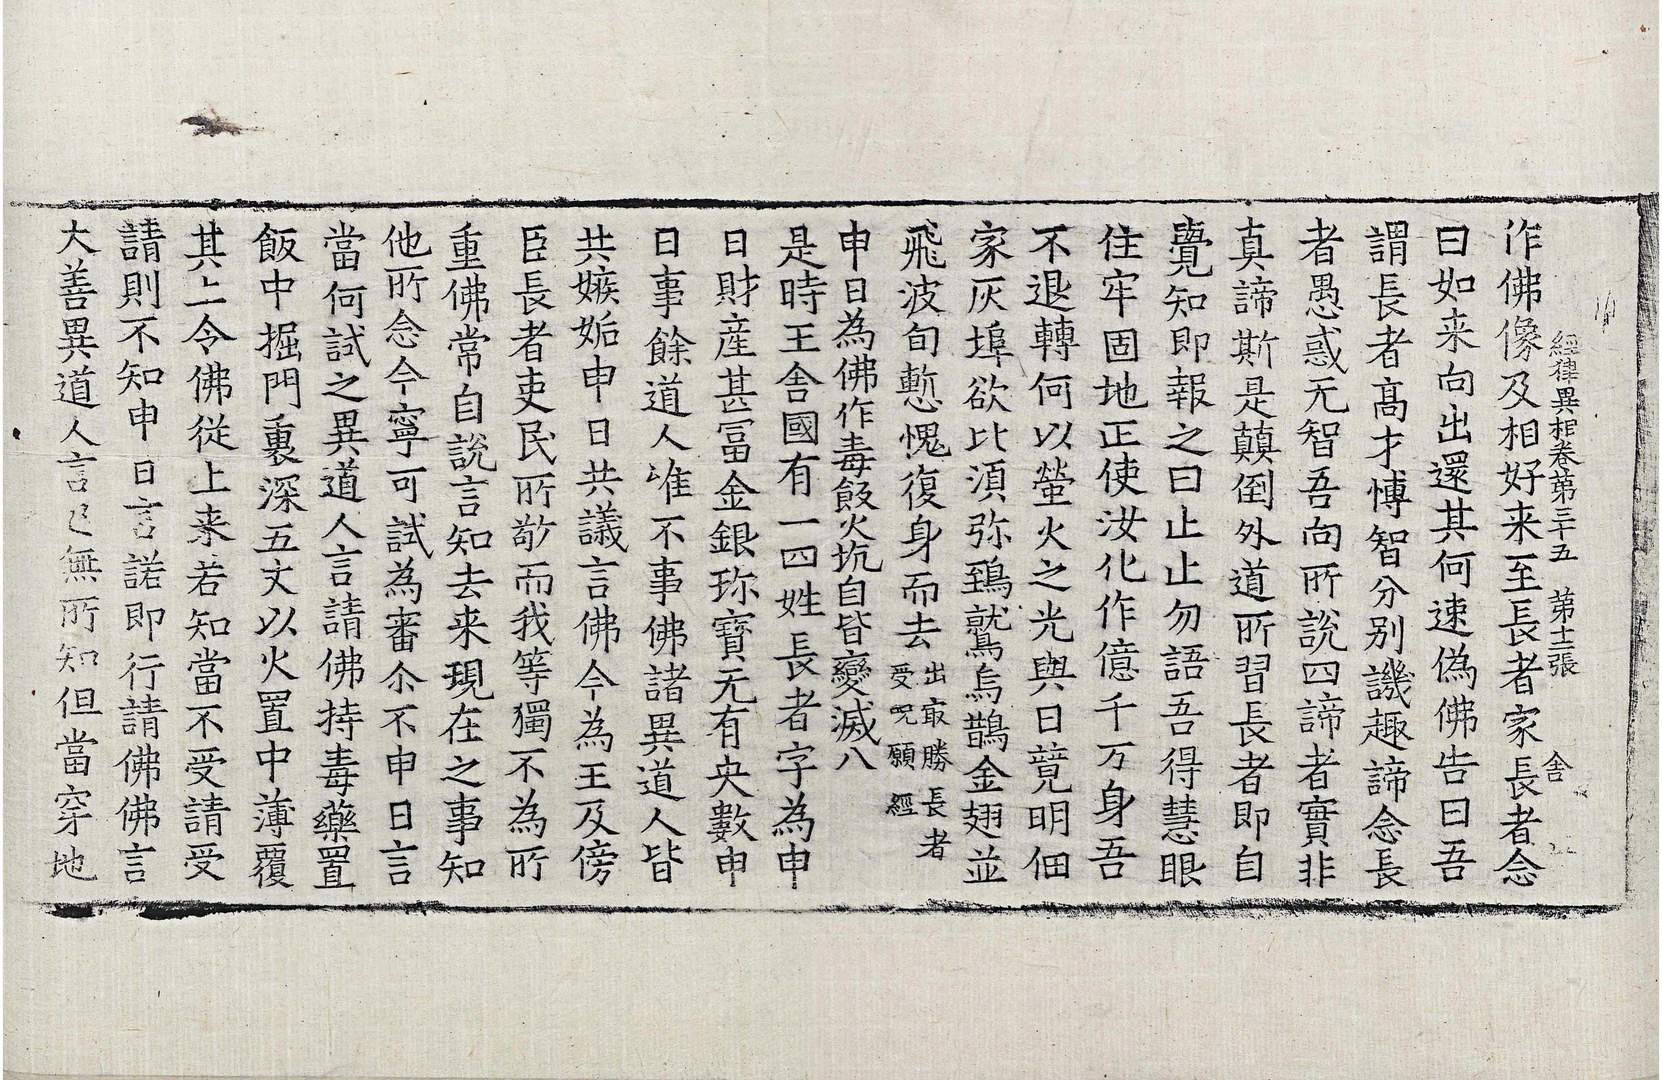 經律異相卷第三十五　第十二張　舍
作佛像及相好来至長者家長者念
曰如来向出還其何速偽佛告曰吾
謂長者髙才博智分別譏趣諦念長
者愚惑无智吾向所說四諦者實非
真諦斯是顛倒外道所習長者即自
覺知即報之曰止止勿語吾得慧眼
住牢固地正使汝化作億千万身吾
不退轉何以螢火之光與日競明佃
家灰埠欲比湏弥鵄鷲烏鵲金翅並
飛波旬慙愧復身而去出㝡勝長者受呪願經
申日為佛作毒飯火坑自皆變滅八
是時王舍國有一四姓長者字為申
日財産甚冨金銀珎寳无有央數申
日事餘道人唯不事佛諸異道人皆
共嫉妬申日共議言佛今為王及傍
臣長者吏民所敬而我等獨不為所
重佛常自說言知去来現在之事知
他所念今寧可試為審尒不申日言
當何試之異道人言請佛持毒藥置
飯中掘門裏深五丈以火置中薄覆
其上令佛從上来若知當不受請受
請則不知申日言諾即行請佛佛言
大善異道人言已無所知但當穿地